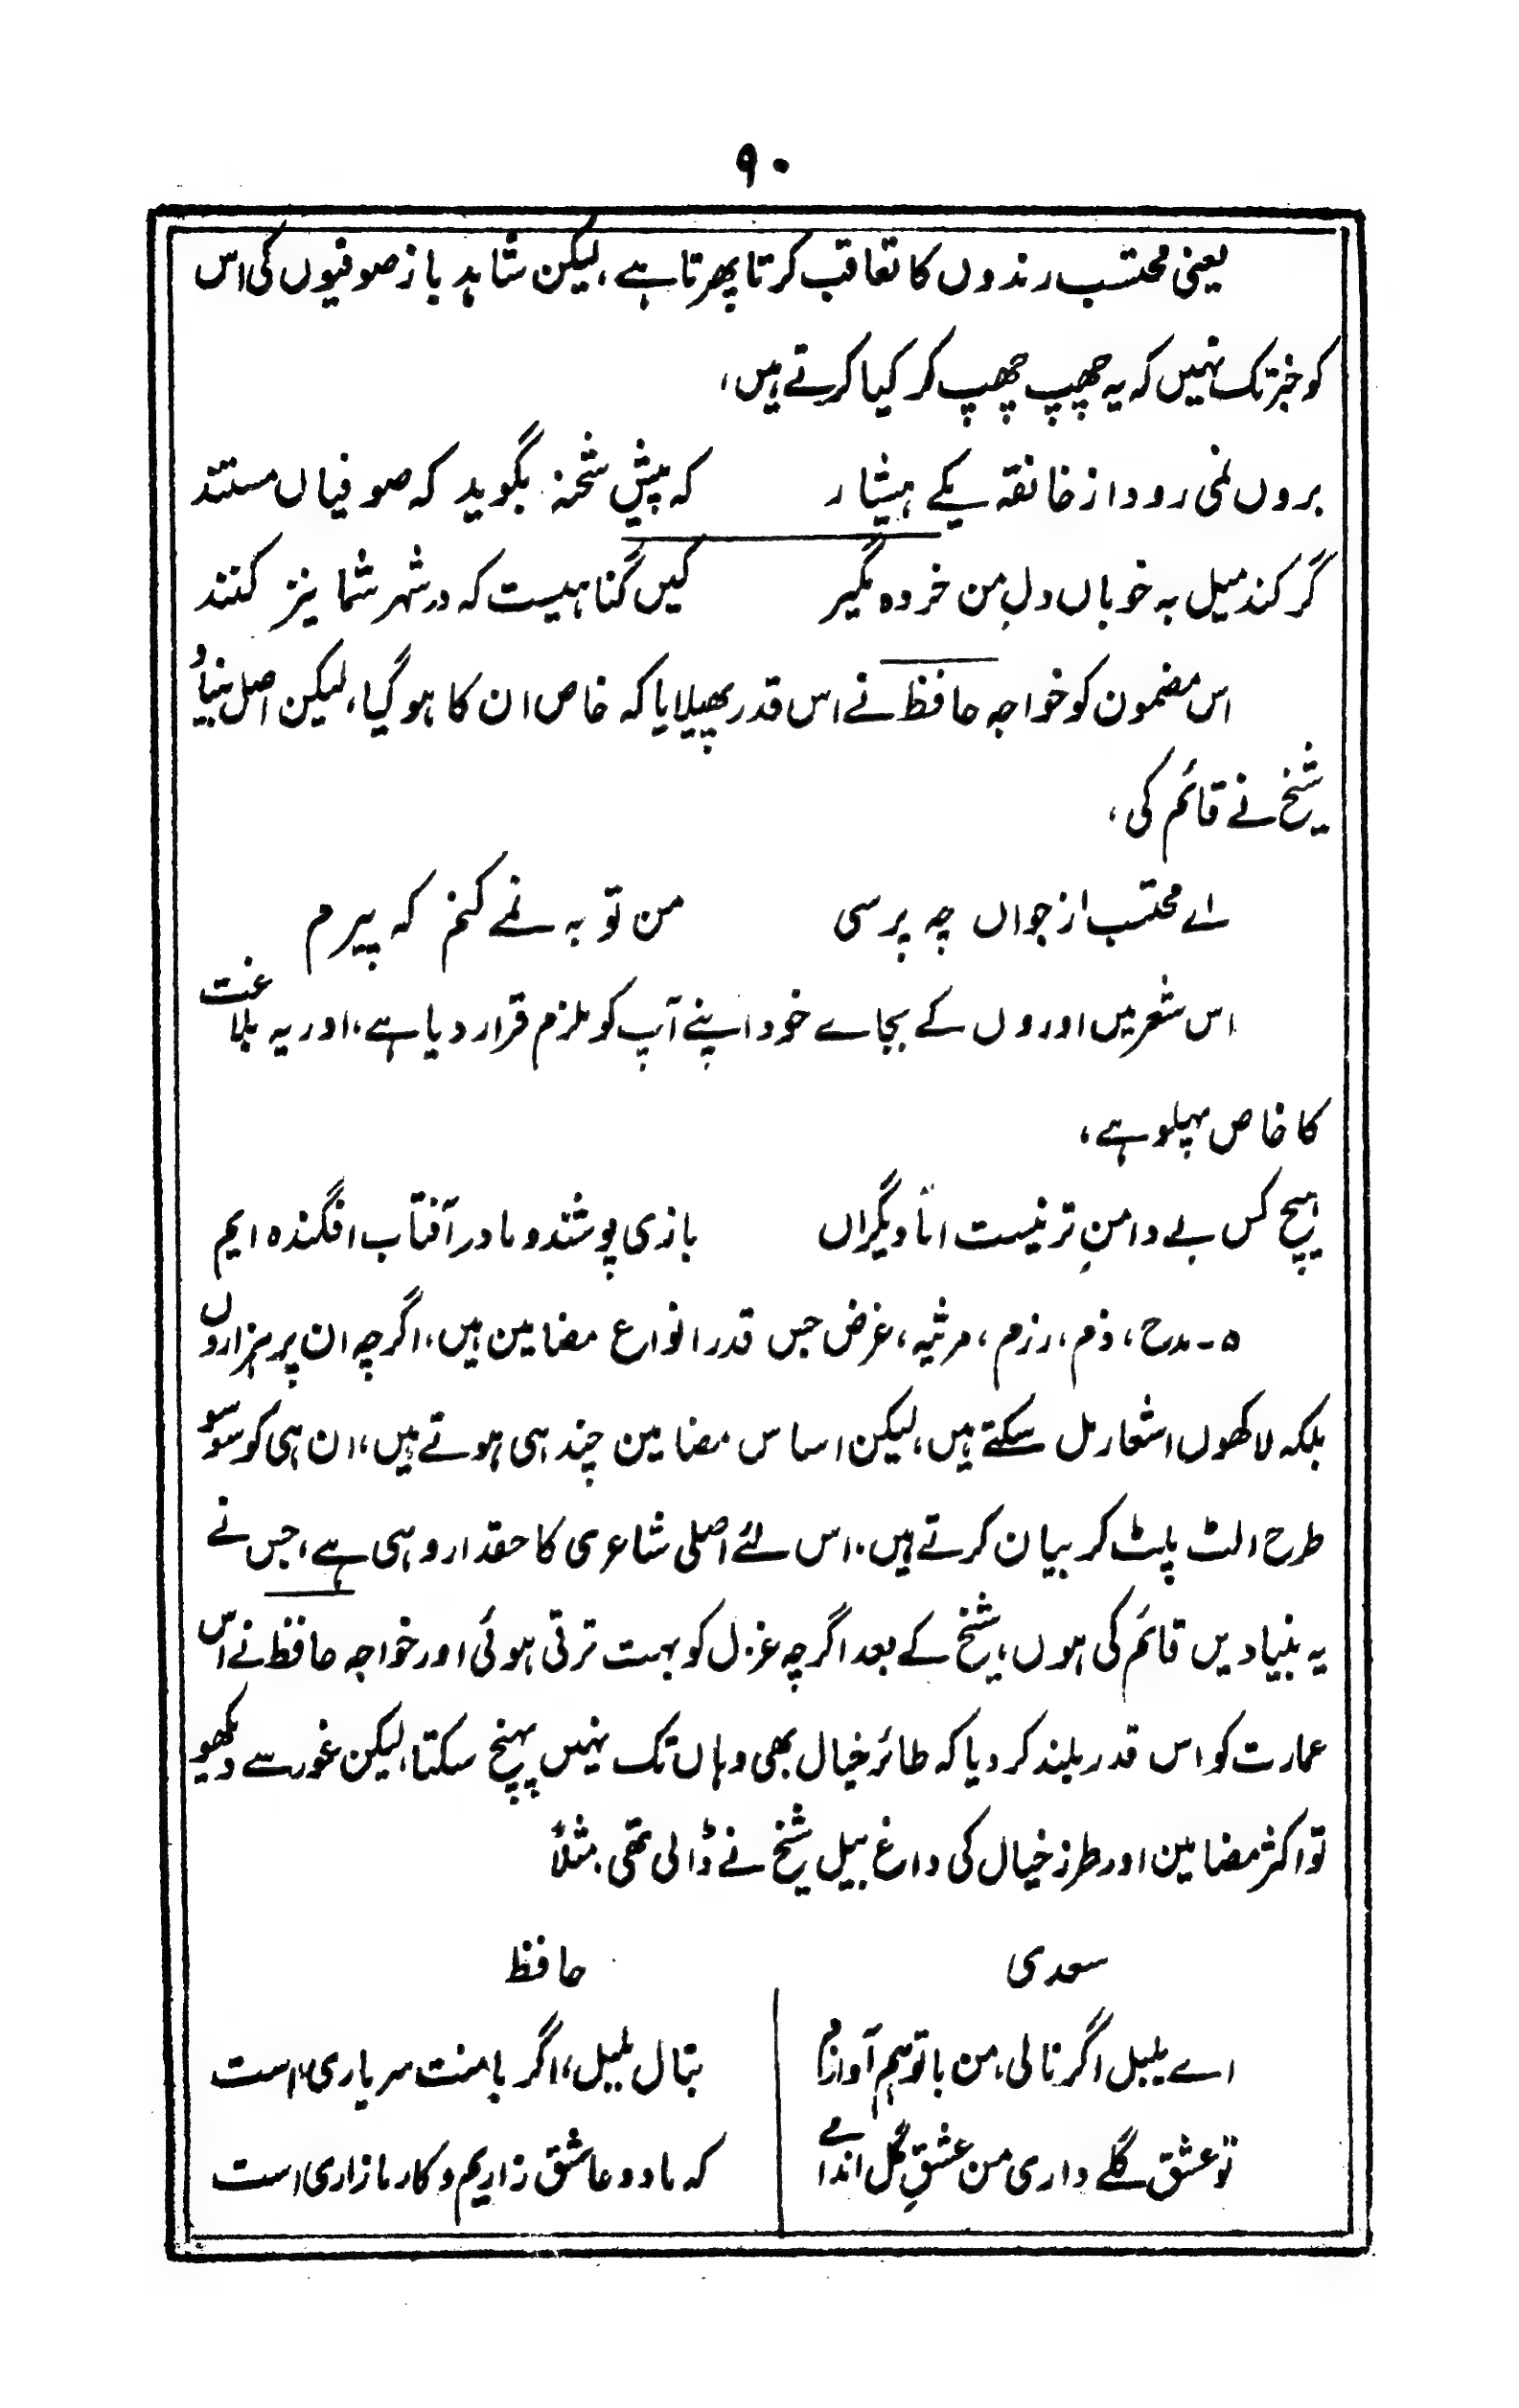 ۹۰
یعنی محتسب رندوں کا تعاقب کرتا پھرتا ہے، لیکن شاہد باز صوفیوں کی اس
کو خبر تک نہیں کہ یہ چھپ چھپ کر کیا کرتے ہیں،
بروں نمی رود از خانقہ یکے ہشیار کہ پیش شحنہ بگوید کہ صوفیاں مستند
گر کند میل بہ خوباں دلِ من خردہ مگیر کیں گناہیست کہ در شہر شما نیز کنند
اس مضمون کو خواجہ حافظ نے اس قدر پھیلایا کہ خاص ان کا ہو گیا، لیکن اصل بنیاد
شیخ نے قائم کی،
اے محتسب از جواں چہ پرسی من توبہ نمے کنم کہ پیرم
اس شعر میں اوروں کے بجاے خود اپنے آپ کو ملزم قرار دیا ہے، اور یہ بلاغت
کا خاص پہلو ہے،
ہیچ کس بے دامنِ تر نیست امّا دیگراں بازمی پوشند و ما در آفتاب افگندہ ایم
۵۔ مدح، ذم، رزم، مرثیہ، غرض جس قدر انواع مضامین ہیں، اگرچہ ان پر ہزاروں
بلکہ لاکھوں اشعار مل سکتے ہیں، لیکن اساس مضامین چند ہی ہوتے ہیں، ان ہی کو سو سو
طرح الٹ پلٹ کر بیان کرتے ہیں، اس لئے اصلی شاعری کا حقدار وہی ہے، جس نے
یہ بنیادیں قائم کی ہوں، شیخ کے بعد اگرچہ غزل کو بہت ترقی ہوئی اور خواجہ حافظ نے اس
عمارت کو اس قدر بلند کر دیا کہ طائر خیال بھی وہاں تک نہیں پہنچ سکتا، لیکن غور سے دیکھو
تو اکثر مضامین اور طرز خیال کی داغ بیل شیخ نے ڈالی تھی، مثلاً
سعدی
اے بلبل اگر نالی، من با تو ہم آوازم
تو عشق گلے داری من عشقِ گل اندامے
حافظ
بنال بلبل، اگر با منت سر یاری است
کہ ما دو عاشق زاریم و کار ما زاری است